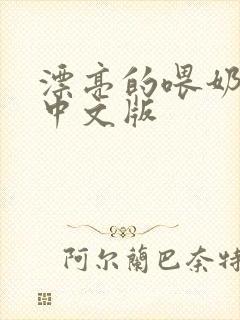 漂亮的喂奶
中文版
阿尔蘭巴奈特